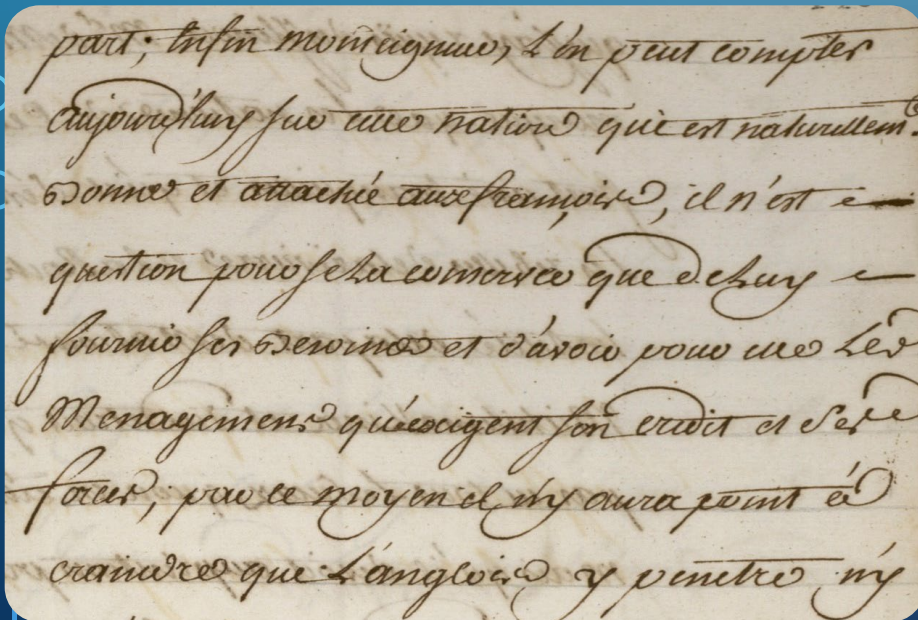 part; Enfin Monseigneur, L'on peut compter
aujourd'huy sur une nation qui est naturellem.t
bonne et attachée aux françois, il n'est
question pour se la conserver que de Luy
fournir ses besoins et d'avoir pour elle Les
Menagemens qu'exigent son credit et ses
forces, par ce moyen il n'y aura point à
craindre que L'anglois y penetre n'y